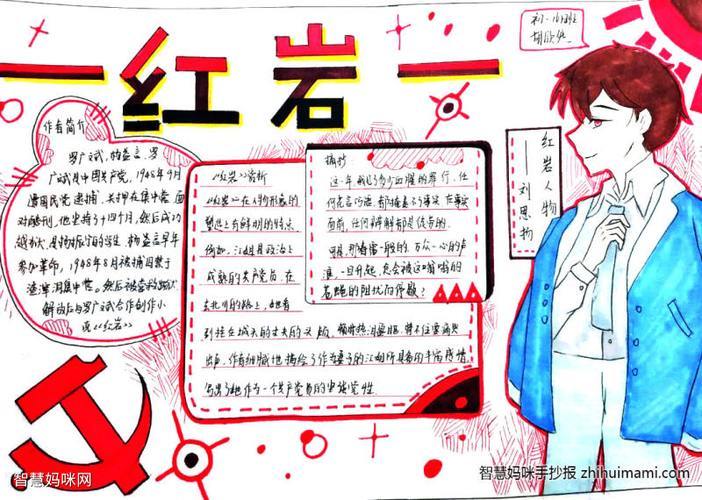 一红岩一
初一
红岩人物
——刘思扬
作者简介
罗广斌,杨益言,罗
广斌是中国共产党,1948年9月
遭国民党逮捕,关押在集中营,面
对酷刑,他坚持了十四个月,然后成功
越狱
杨益言早年
参加革命,1948年8月被捕囚禁于
渣滓洞集中营。然后
解放后与罗广斌合作创作小
说《红岩》
《红岩》赏析
《红岩》在人物形象的
塑造上有鲜明的特点,
例如,江姐是政治上
成熟的共产党员,在
去北川的路上,她看
到挂在城头的丈夫的头颅,
出色,作者细腻地描绘了作为妻子的江姐所具备的丰富感情,
写出了她作为一个共产党员的坚强党性
摘抄:
这一年我见了多少血腥的罪行,任
何花言巧语,都掩盖不了事实,在事实
面前,任何辩解都是徒劳的。
可是,那海啸一般的,万众一心的声
浪,一旦升起,怎会被这嗡嗡的
苍蝇的阻扰而停歇?
智慧妈咪网
智慧妈咪手抄报 zhihuimami.com